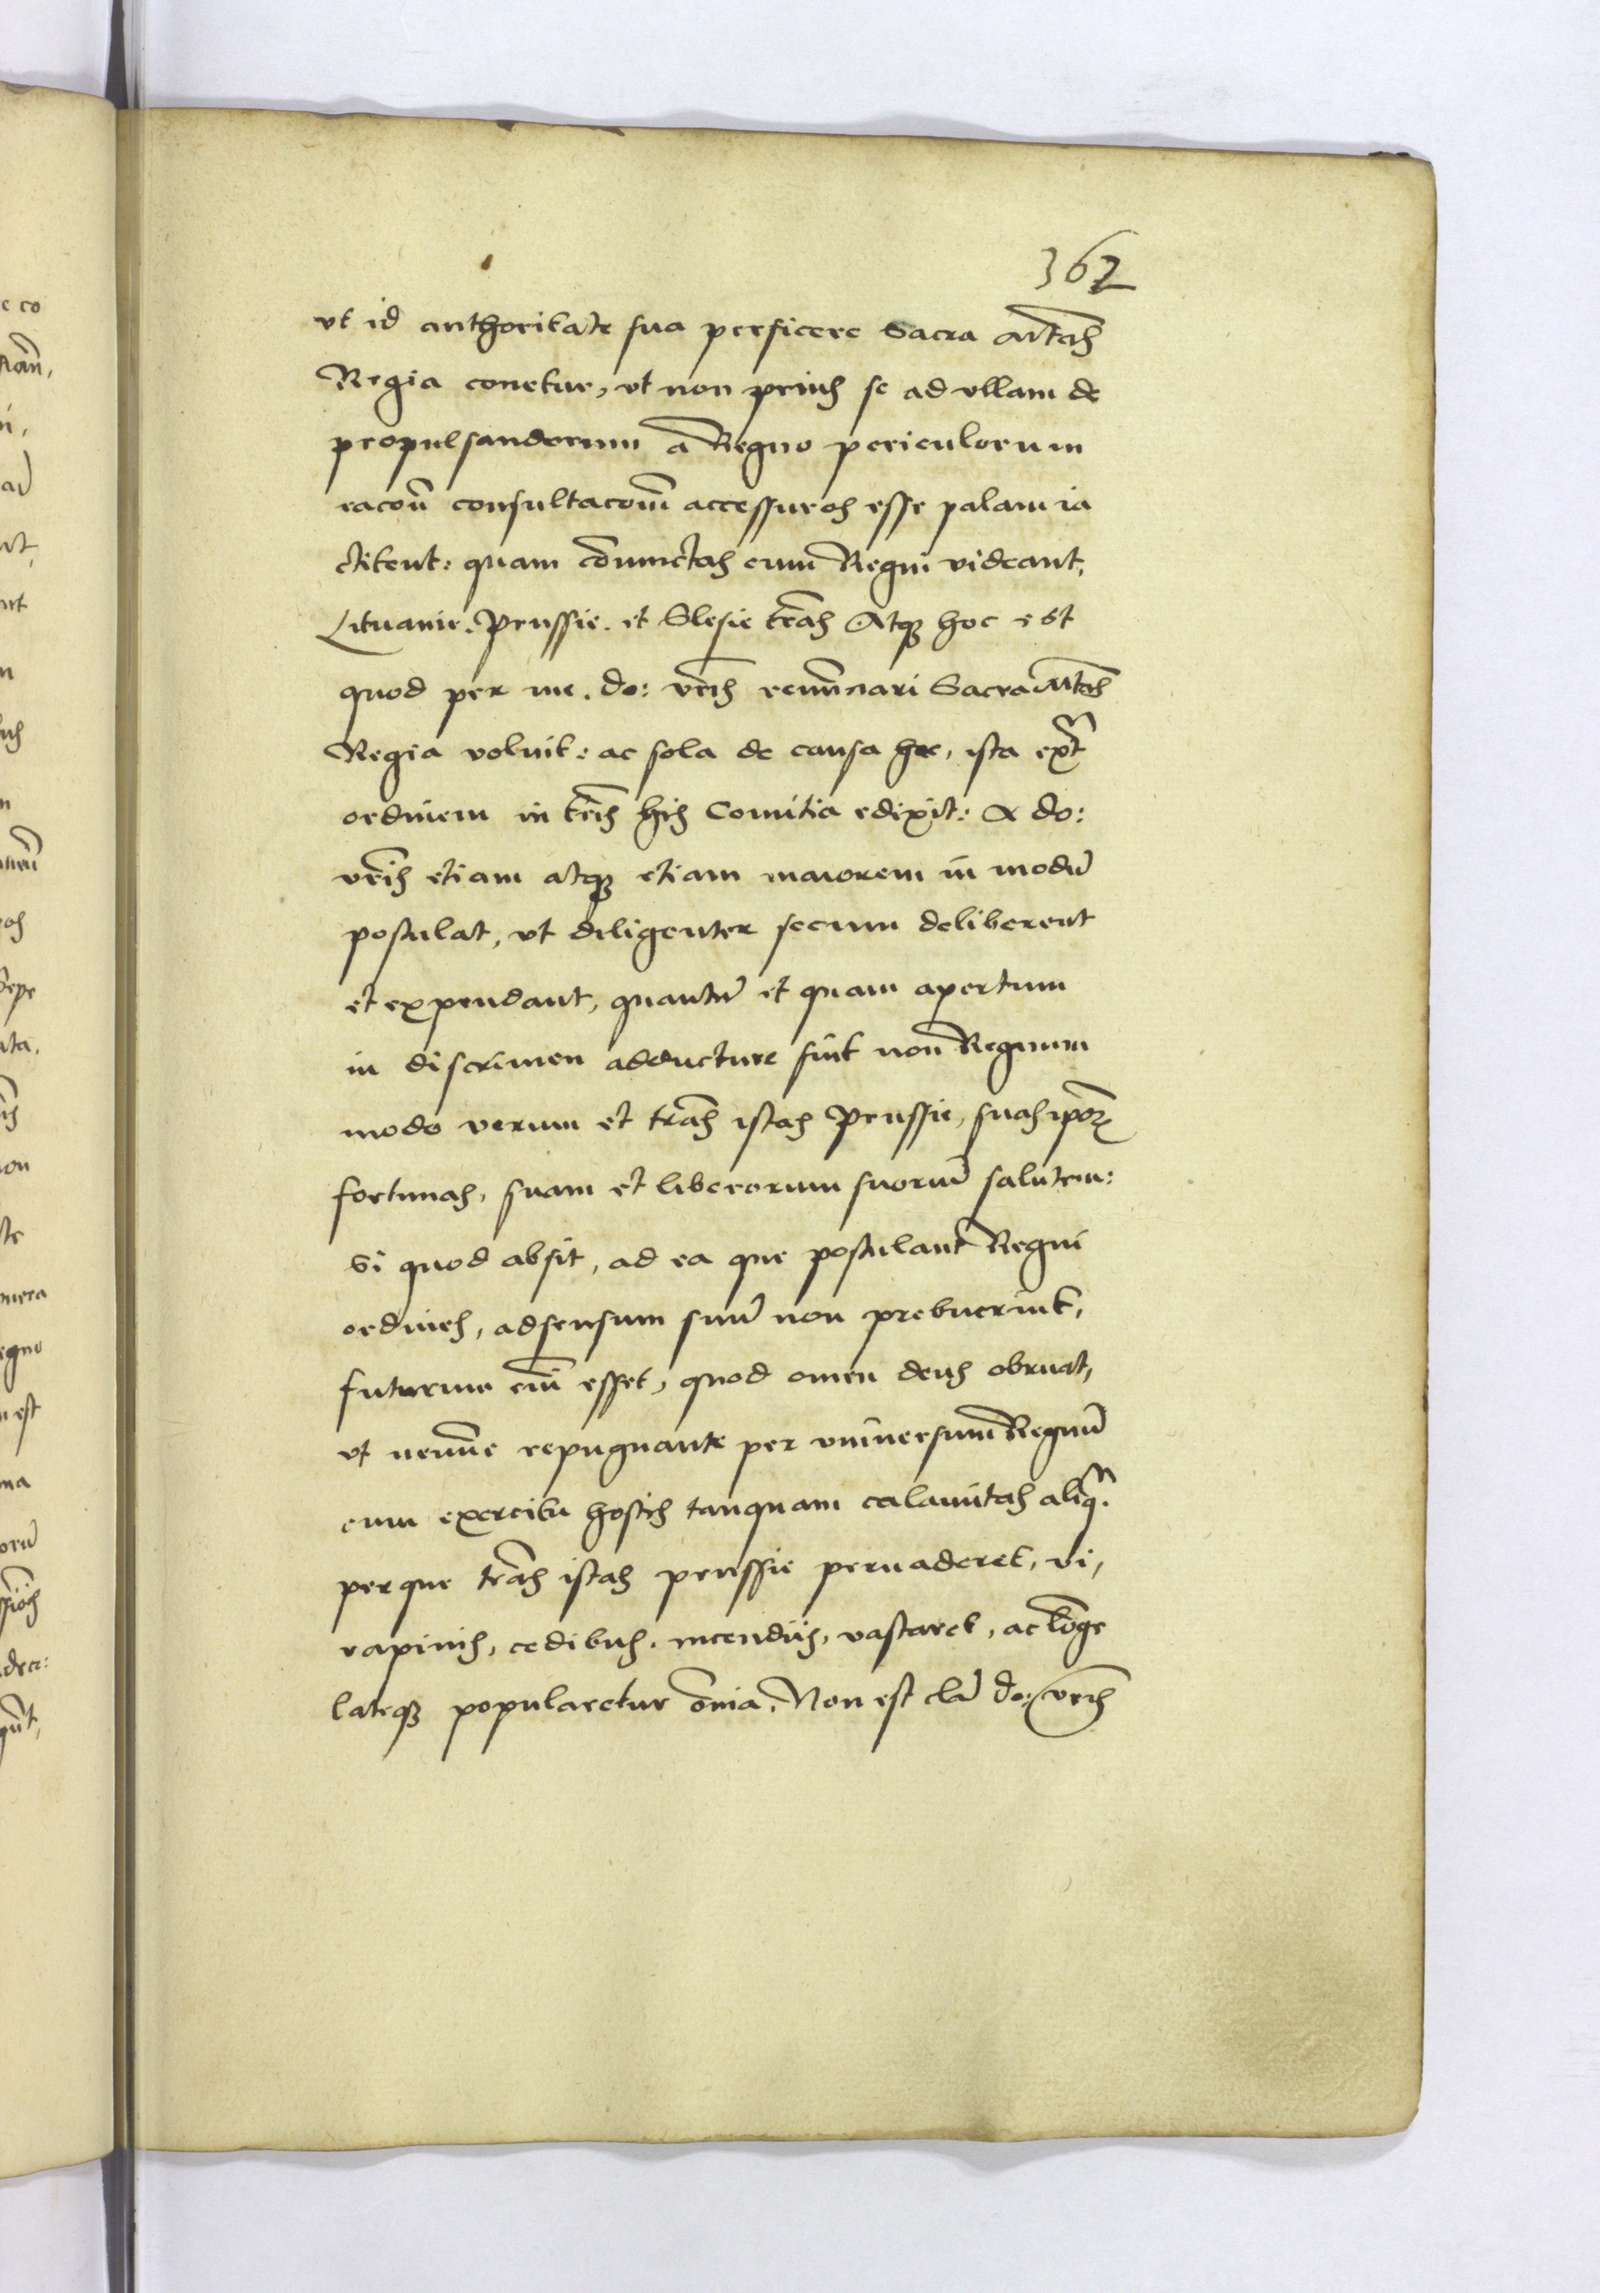 362
vt id authoritate sua perficere Sacra Mtas
Regia conetur, vt non prius se ad vllam de
propulsandorum a Regno periculorum
racoñ consultacom̃ accessuros esse palam ia
ctitent: quam cõiunctas cum Regni videant,
Lituanie, Prussie. et Slesie tr̃as Atq hoc est
quod per me. do: vr̃is renũnciari Sacra Mtas
Regia voluit: ac sola de causa hec, ista ext̃
ordinem in tr̃is his Comitia edixit: A do:
vr̃is etiam atq etiam maiorem in modũ
postulat, vt diligenter secum deliberent
et expendant, quantũ et quam apertum
in discrimen adducture sint non Regnum
modo verum et tr̃as istas Prussie, suas ipoꝝ
fortunas, suam et liberorum suorũ salutem:
Si quod absit, ad ea que postulant Regni
ordines, adsensum suũ non prebuerint,
futurum em̃ esset, quod omen deus obruat,
vt nemĩe repugnante per vniuersum Regnũ
cum exercitu hostis tanquam calamitas aliq̃.
perque tr̃as istas prussie peruaderet, vi,
rapinis, cedibus, incendiis, vastaret, ac lõge
lateq popularetur õnia. Non est clã do: vr̃is